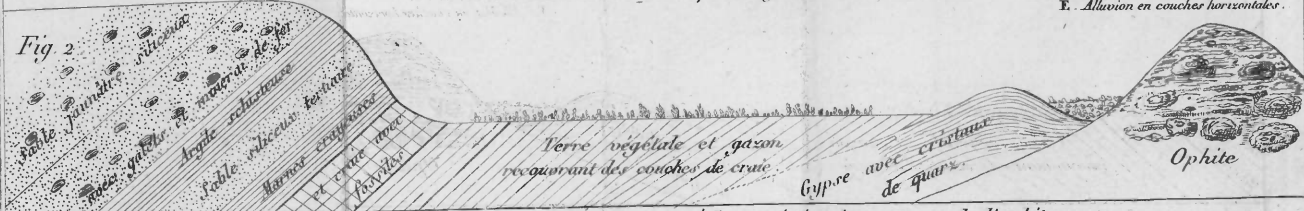 E. Alluvion en couches horizontales.
Fig. 2
Sable jaunâtre siliceux
avec galets et minerai de fer
Argile schisteuse
Sable siliceux tertiaire
Marnes crayeuses
et craie avec
fossiles
Terre végétale et gazon
recouvrant des couches de craie
Gypse avec cristaux
de quarz.
Ophite